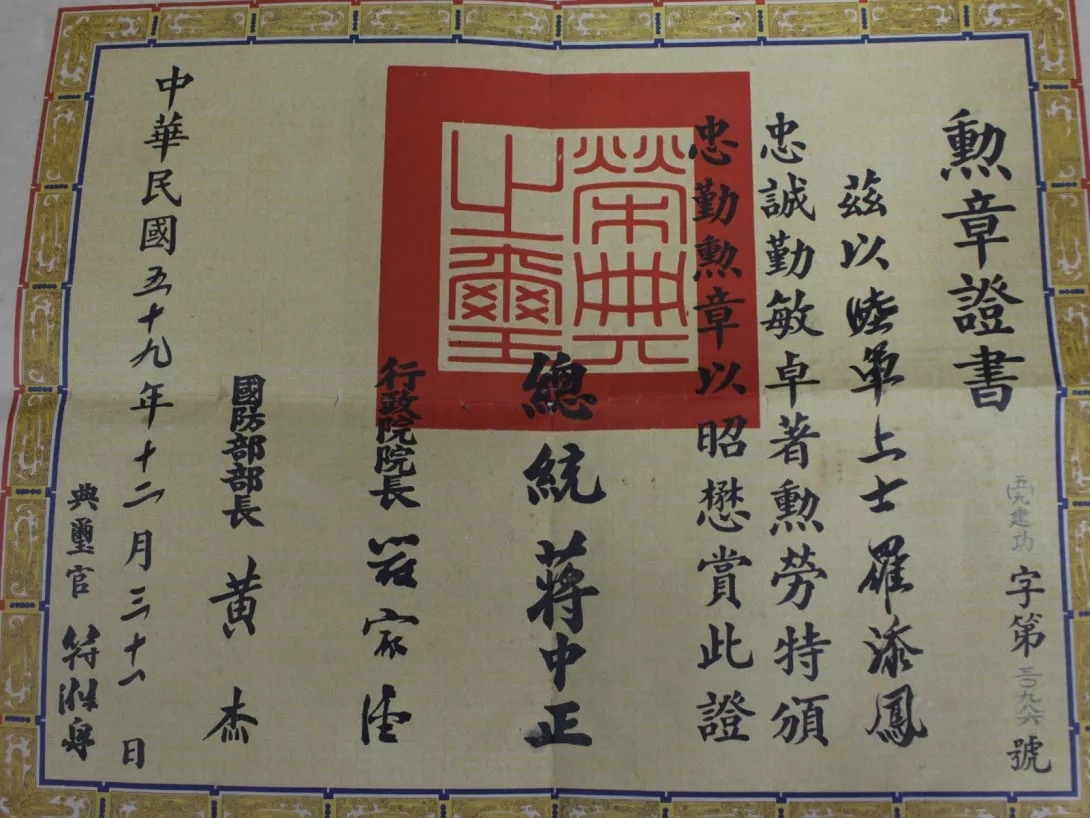 勳章證書
(五九)建功字第三〇九八六號
茲以陸軍上士羅添鳳
忠誠勤敏卓著勳勞特頒
忠勤勳章以昭懋賞此證
榮典之璽
總統 蔣中正
行政院院長 嚴家淦
國防部部長 黃杰
中華民國五十九年十二月三十一日
典璽官